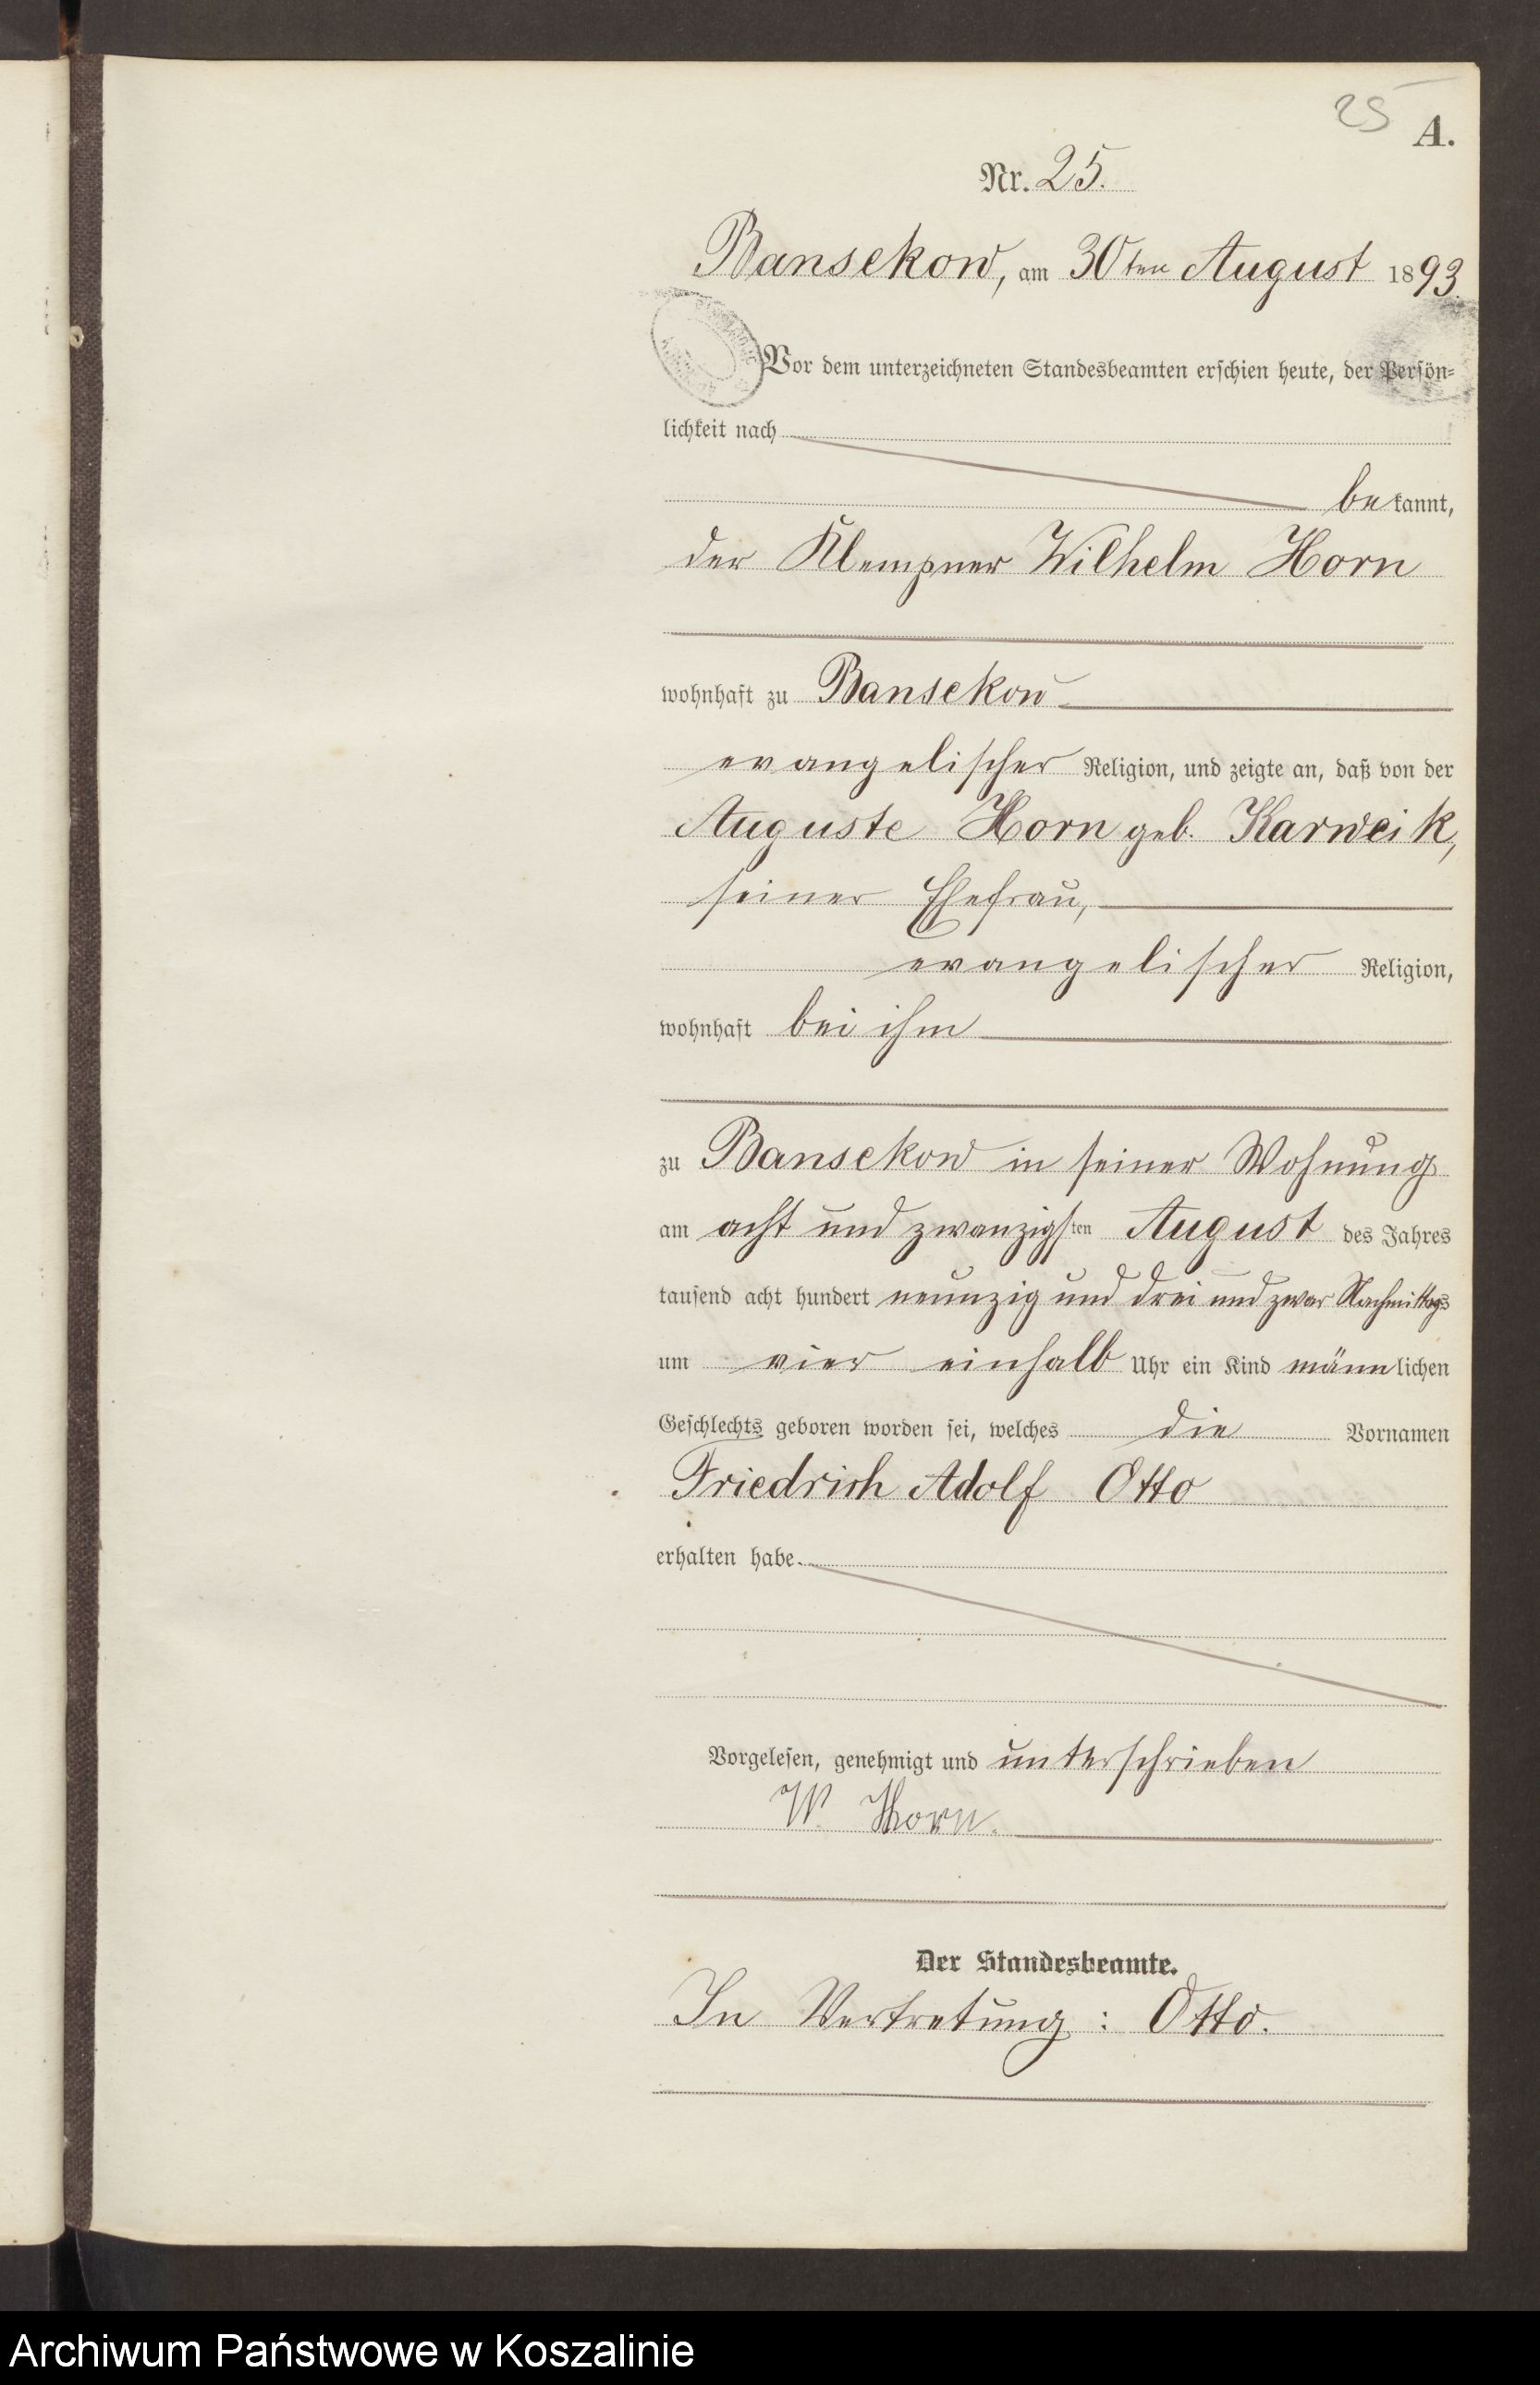 25
A.
Nr. 25.
Bansekow, am 30ten August 1893.
Vor dem unterzeichneten Standesbeamten erschien heute, der Persön-
lichkeit nach
bekannt,
der Klempner Wilhelm Horn
wohnhaft zu Bansekow
evangelischer Religion, und zeigte an, daß von der
Auguste Horn geb. Karweik,
seiner Ehefrau,
evangelischer Religion,
wohnhaft bei ihm
zu Bansekow in seiner Wohnung
am acht und zwanzigsten August des Jahres
tausend acht hundert neunzig und drei und zwar Nachmittags
um vier einhalb Uhr ein Kind männlichen
Geschlechts geboren worden sei, welches die Vornamen
Friedrich Adolf Otto
erhalten habe.
Vorgelesen, genehmigt und unterschrieben
W. Horn.
Der Standesbeamte.
In Vertretung: Otto.
Archiwum Państwowe w Koszalinie